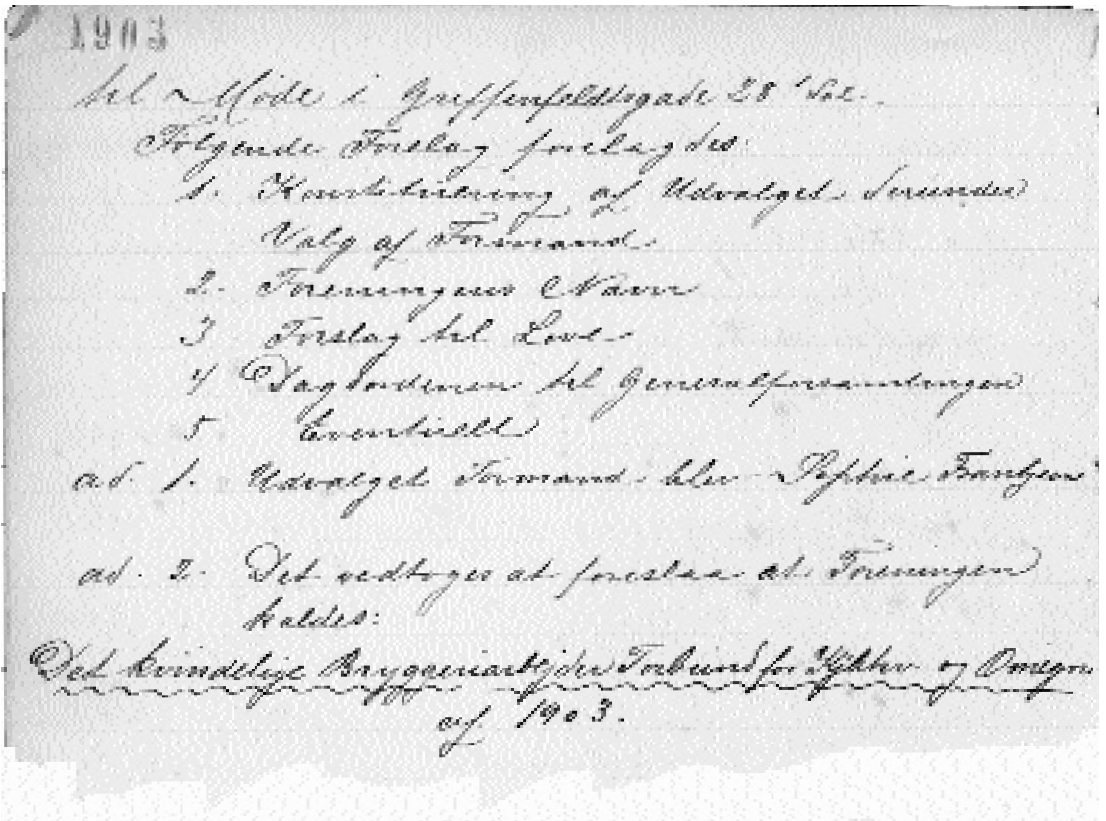 1903
til Møde i Griffenfeldtsgade 28
Følgende Forslag forelagdes:
1. Konstituering af Udvalget herunder
Valg af Formand.
2. Foreningens Navn
3 Forslag til Love
4 Dagsordenen til Generalforsamlingen
5 Eventuelt
ad. 1. Udvalget Formand blev Sophie Frantzen
ad. 2. Det vedtoges at foreslaa at Foreningen
kaldes:
Det kvindelige Bryggeriarbejder Forbund for Kjbhv. og Omegn
af 1903.